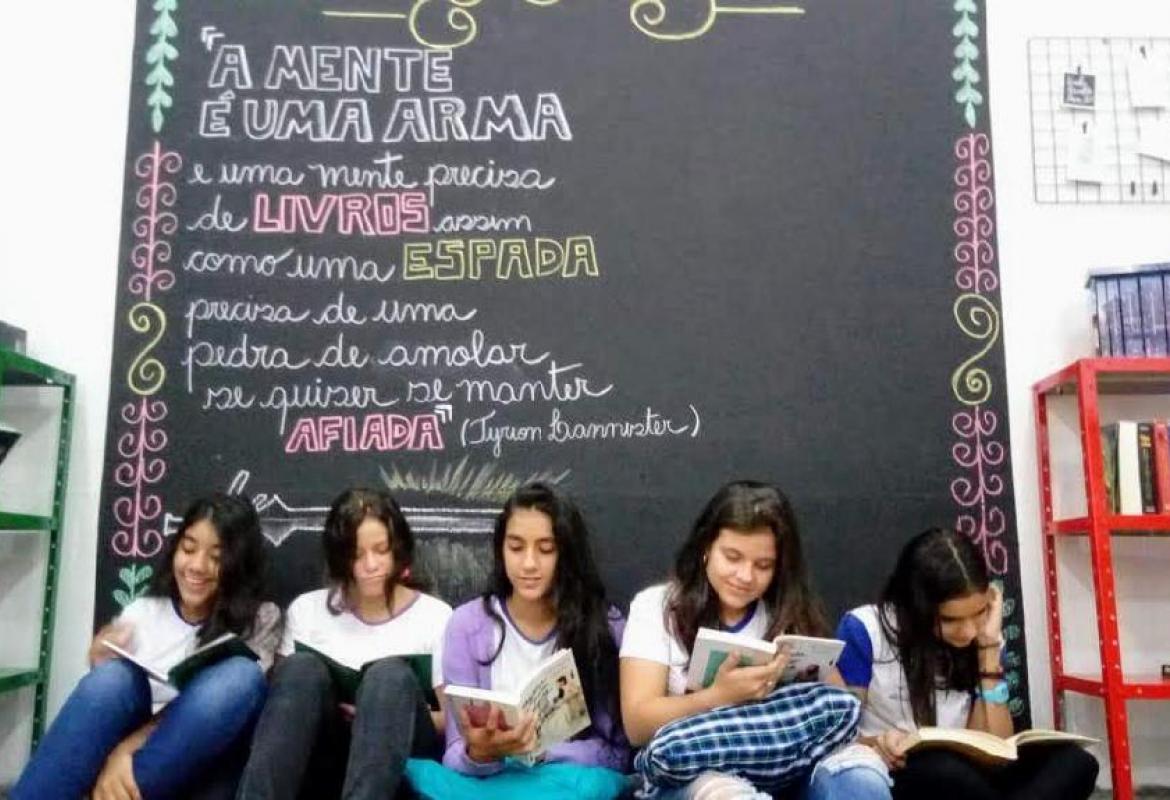 "A MENTE
É UMA ARMA
e uma mente precisa
de LIVROS assim
como uma ESPADA
precisa de uma
pedra de amolar
se quiser se manter
AFIADA" (Tyrion Lannister)